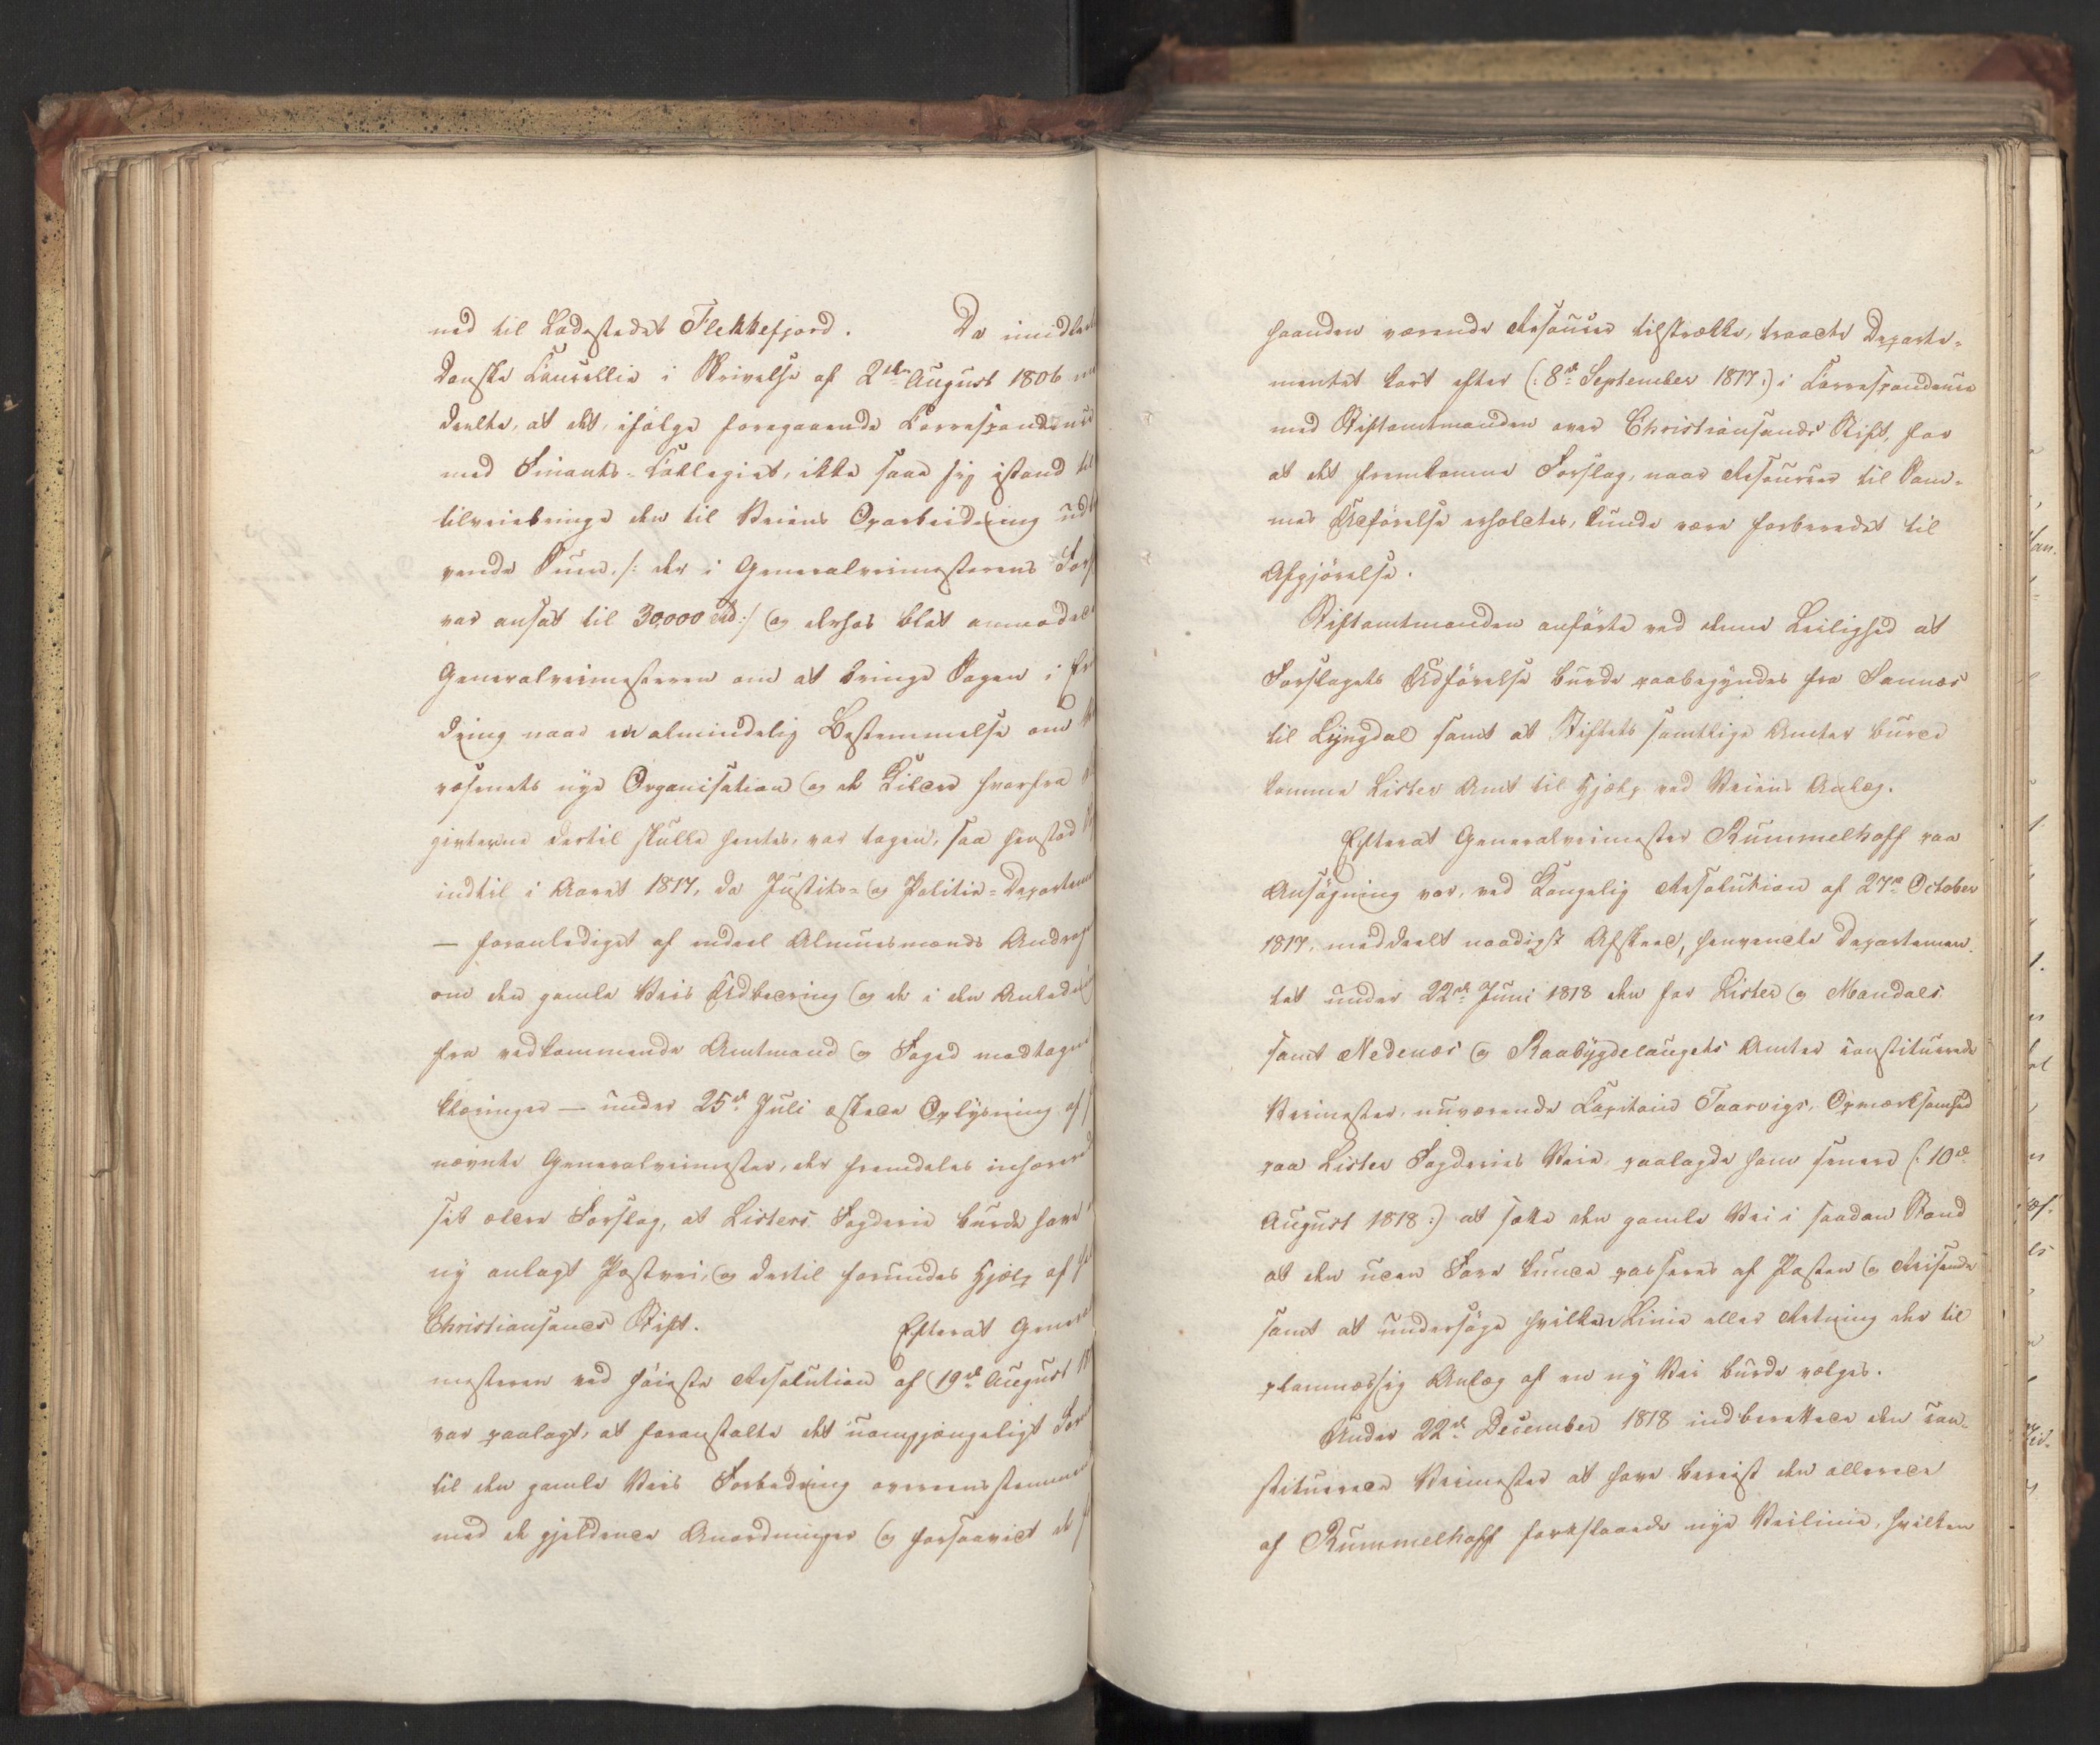 ned til Ladestedet Flekkefjord. Da imidler
danske Cancellie i Skrivelse af 2den August 1806 med
deelte, at det, ifølge foregaaende Correspondence
med Finants-Collegiet, ikke saae sig istand til
tilveiebringe den til Veiens Oparbeidning udk
rende Sum, /: der i Generalveimesterens Fors
var ansat til 30,000 rd :/ og derhos blot anmodede
Generalveimesteren om at bringe Sagen i Er
dring naar en almindelig Bestemmelse om V
væsenets nye Organisation og de Kilder hvorfra
givterne dertil skulle hentes, var tagen, saa henstod
indtil i Aaret 1817, da Justits- og Politie-Departem
— foranlediget af endeel Almuesmænds Andrage
om den gamle Veis Udbedring og de i den Anledning
fra vedkommende Amtmand og Foged modtagne
klæringer — under 25de Juli æskede Oplysning af
nævnte Generalveimester, der fremdeles inhærered
sit ældre Forslag, at Listers Fogderie burde have
ny anlagt Postvei, og dertil forundes Hjælp af
Christiansands Stift. Efterat General
mesteren ved høieste Resolution af 19de August 18
var paalagt, at foranstalte det uomgjængeligt For
til den gamle Veis Forbedring overeensstemme
med de gjeldende Anordninger og forsaavidt de
haanden værende Resourcer tilstrække, traadte Departe-
mentet kort efter (: 8de September 1817 :) i Correspondence
med Stiftamtmanden over Christiansands Stift, for
at det fremkomne Forslag, naar Resourcer til Sam-
mes Udførelse erholdtes, kunde være forberedet til
Afgjørelse.
Stiftamtmanden anførte ved denne Leilighed at
Forslagets Udførelse burde paabegyndes fra Sannes
til Lyngdal samt at Stiftets samtlige Amter burde
komme Lister Amt til Hjælp ved Veiens Anlæg.
Efterat Generalveimester Rummelhoff paa
Ansøgning var, ved Kongelig Resolution af 27de October
1817, meddeelt naadigst Afskeed, henvendte Departemen
tet under 22de Juni 1818 den for Lister og Mandals
samt Nedenæs og Raabygdelaugets Amter constituerede
Veimester, nuværende Capitain Taarvigs, Opmærksomhed
paa Lister Fogderies Veie, paalagde ham senere (: 10de
August 1818 :) at sætte den gamle Vei i saadan Stand
at den uden Fare kunde passeres af Posten og Reisende
samt at undersøge hvilken Linie eller Retning der til
planmæssig Anlæg af en ny Vei burde vælges.
Under 22de December 1818 indberettede den con-
stituerede Veimester at have bereist den allerede
af Rummelhoff foreslaaede nye Veilinie, hvilken